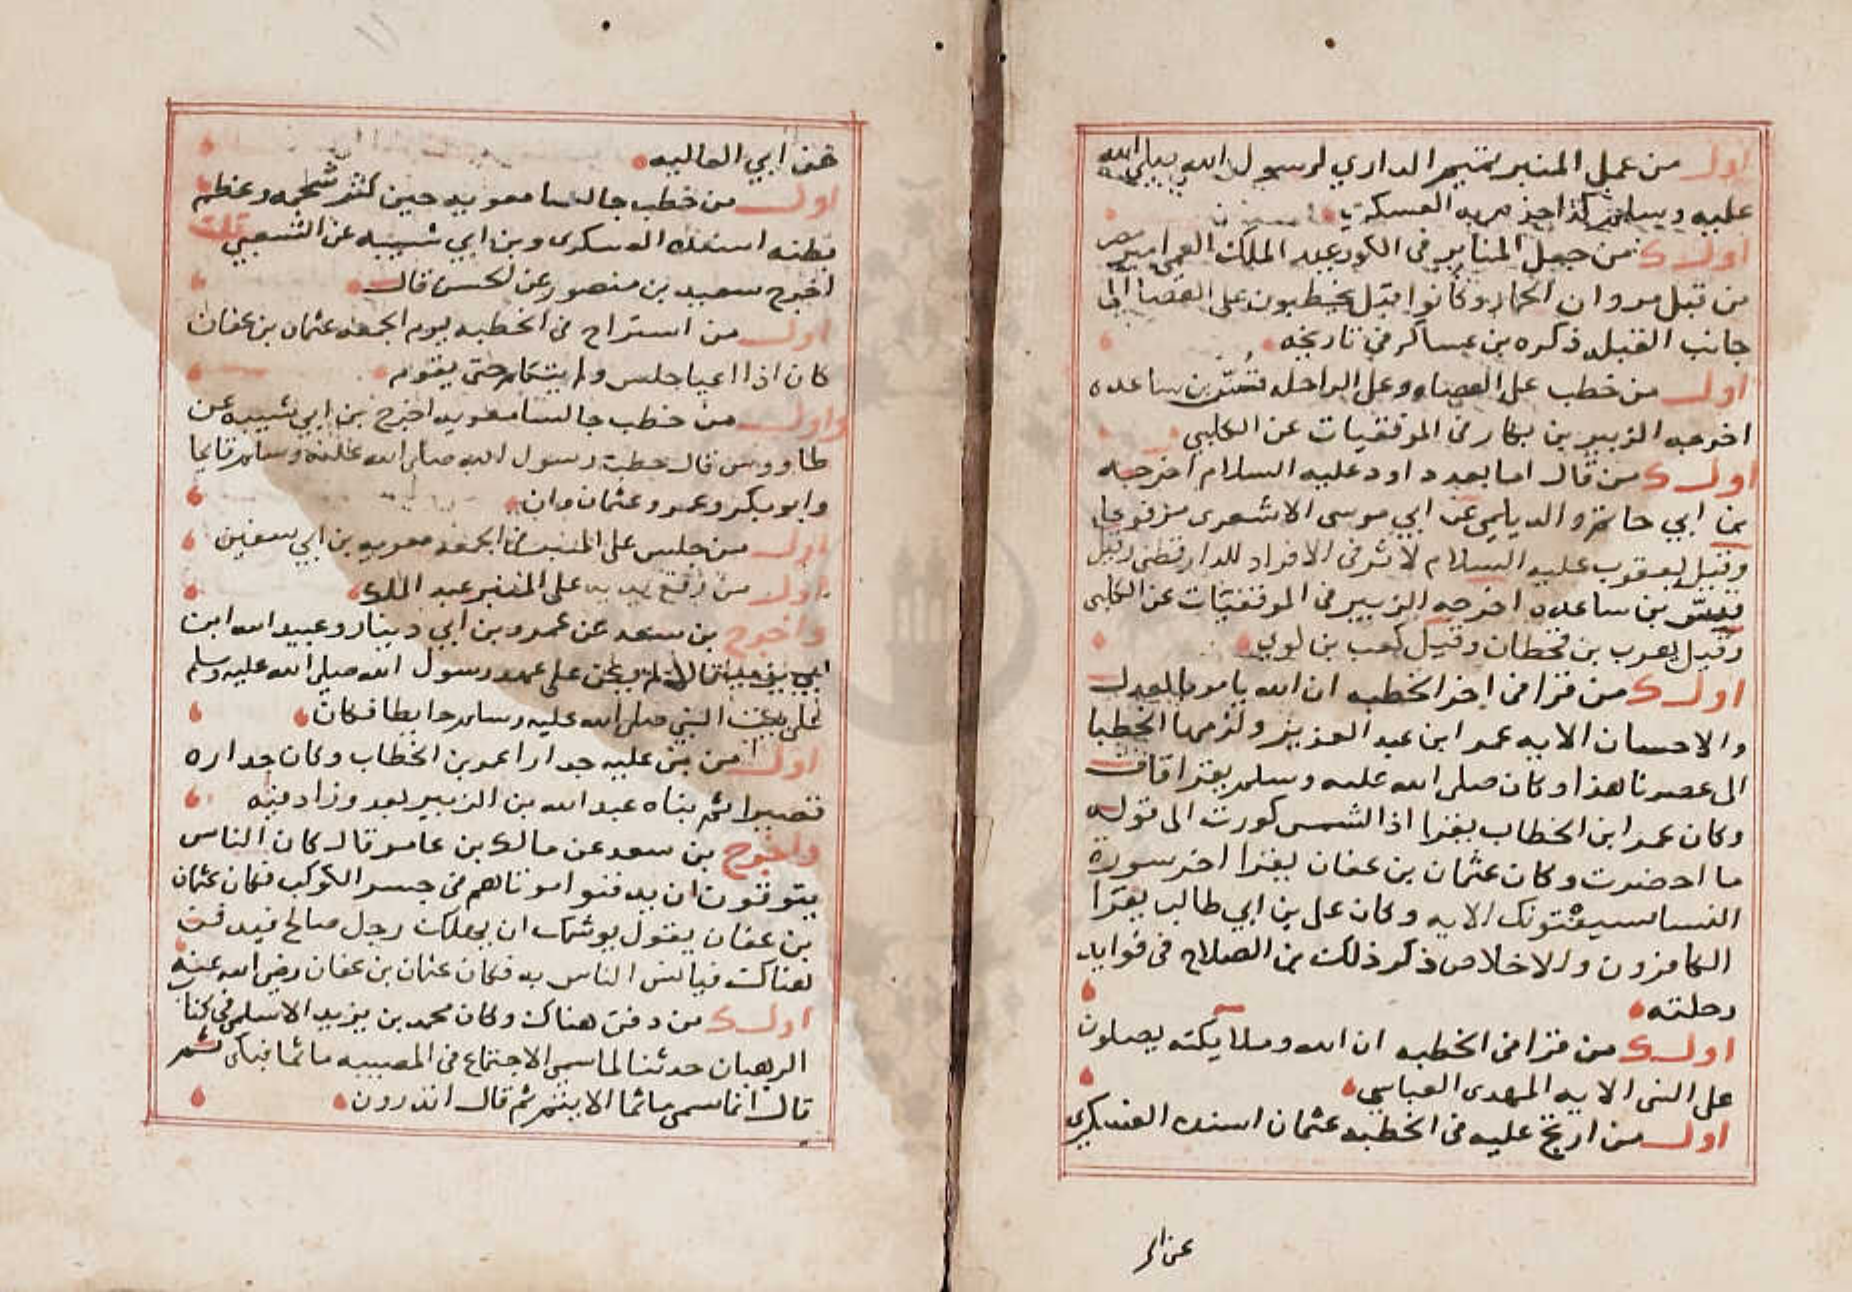 اول من عمل المنبر تميم الداري لرسول الله صلى الله
عليه وسلم كذا جزم به العسكري
اول من جعل المنابر في الكور عبد الملك امير مصر
من قبل مروان الحمار وكانوا قبل يخطبون على العصا الى
جانب القبله ذكره بن عساكر في تاريخه
اول من خطب على العصاه وعلى الراحله قُسّ بن ساعده
اخرجه الزبير بن بكار في الموفقيات عن الكلبي
اول من قال اما بعد داود عليه السلام اخرجه
بن ابي حاتم والديلمي عن ابي موسى الاشعرى مرفوعا
وقيل يعقوب عليه السلام لاثر في الافراد للدار قطني وقيل
قسّ بن ساعده اخرجه الزبير في الموفقيات عن الكلبي
وقيل يعرب بن قحطان وقيل كعب بن لوي
اول من قرا في اخر الخطبه ان الله يامر بالعدل
والاحسان الايه عمر ابن عبد العزيز ولزمها الخطبا
الى عصرنا هذا وكان صلى الله عليه وسلم يقرا قاف
وكان عمر ابن الخطاب يقرا اذا الشمس كورت الى قوله
ما احضرت وكان عثمان بن عفان يقرا اخر سورة
النسا سيفتونك الايه وكان على بن ابي طالب يقرا
الكافرون والاخلاص ذكر ذلك بن الصلاح في فوايد
رحلته
اول من قرا في الخطبه ان الله وملايكته يصلون
على النبى الايه المهدى العباسي
اول من ارتج عليه في الخطبه عثمان اسنده العسكري
عن ابي العاليه
اول من خطب جالسا معويه حين كثر شحمه وعظم
بطنه اسنده العسكرى وبن ابي شيبه عن الشعبي قلت
اخرج سعيد بن منصور عن الحسن قال
اول من استراح في الخطبه يوم الجمعه عثمان بن عفان
كان اذا اعيا جلس ولم يتكلم حتى يقوم
واول من خطب جالسا معويه اخرج بن ابي شيبه عن
طاووس قال خطب رسول الله صلى الله عليه وسلم قايما
وابو بكر وعمر وعثمان وان
اول من جلس على المنبر في الجمعه معويه بن ابي سفين
اول من رفع يديه على المنبر عبد الملك
واخرج بن سعد عن عمرو بن ابي دينار وعبيد الله ابن
ابي يزيد قال لم يكن على عهد رسول الله صلى الله عليه وسلم
على بيت النبي صلى الله عليه وسلم حايط فكان
اول من بنى عليه جدارا عمر بن الخطاب وكان جداره
قصيرا ثم بناه عبد الله بن الزبير بعد وزاد فيه
واخرج بن سعد عن مالك بن عامر قال كان الناس
يتوقون ان يدفنوا موتاهم في جسر الكوكب فكان عثمان
بن عفان يقول يوشك ان يهلك رجل صالح فيدفن
هناك فياتسى الناس به فكان عثمان بن عفان رضي الله عنه
اول من دفن هناك وكان محمد بن يزيد الاسلمي في كتاب
الرهبان حدثنا لما سمى الاجتماع في المصيبه ماتما فبكى ثم
قال انما سمى ماتما الا ثم قال اتدرون
عن ابي